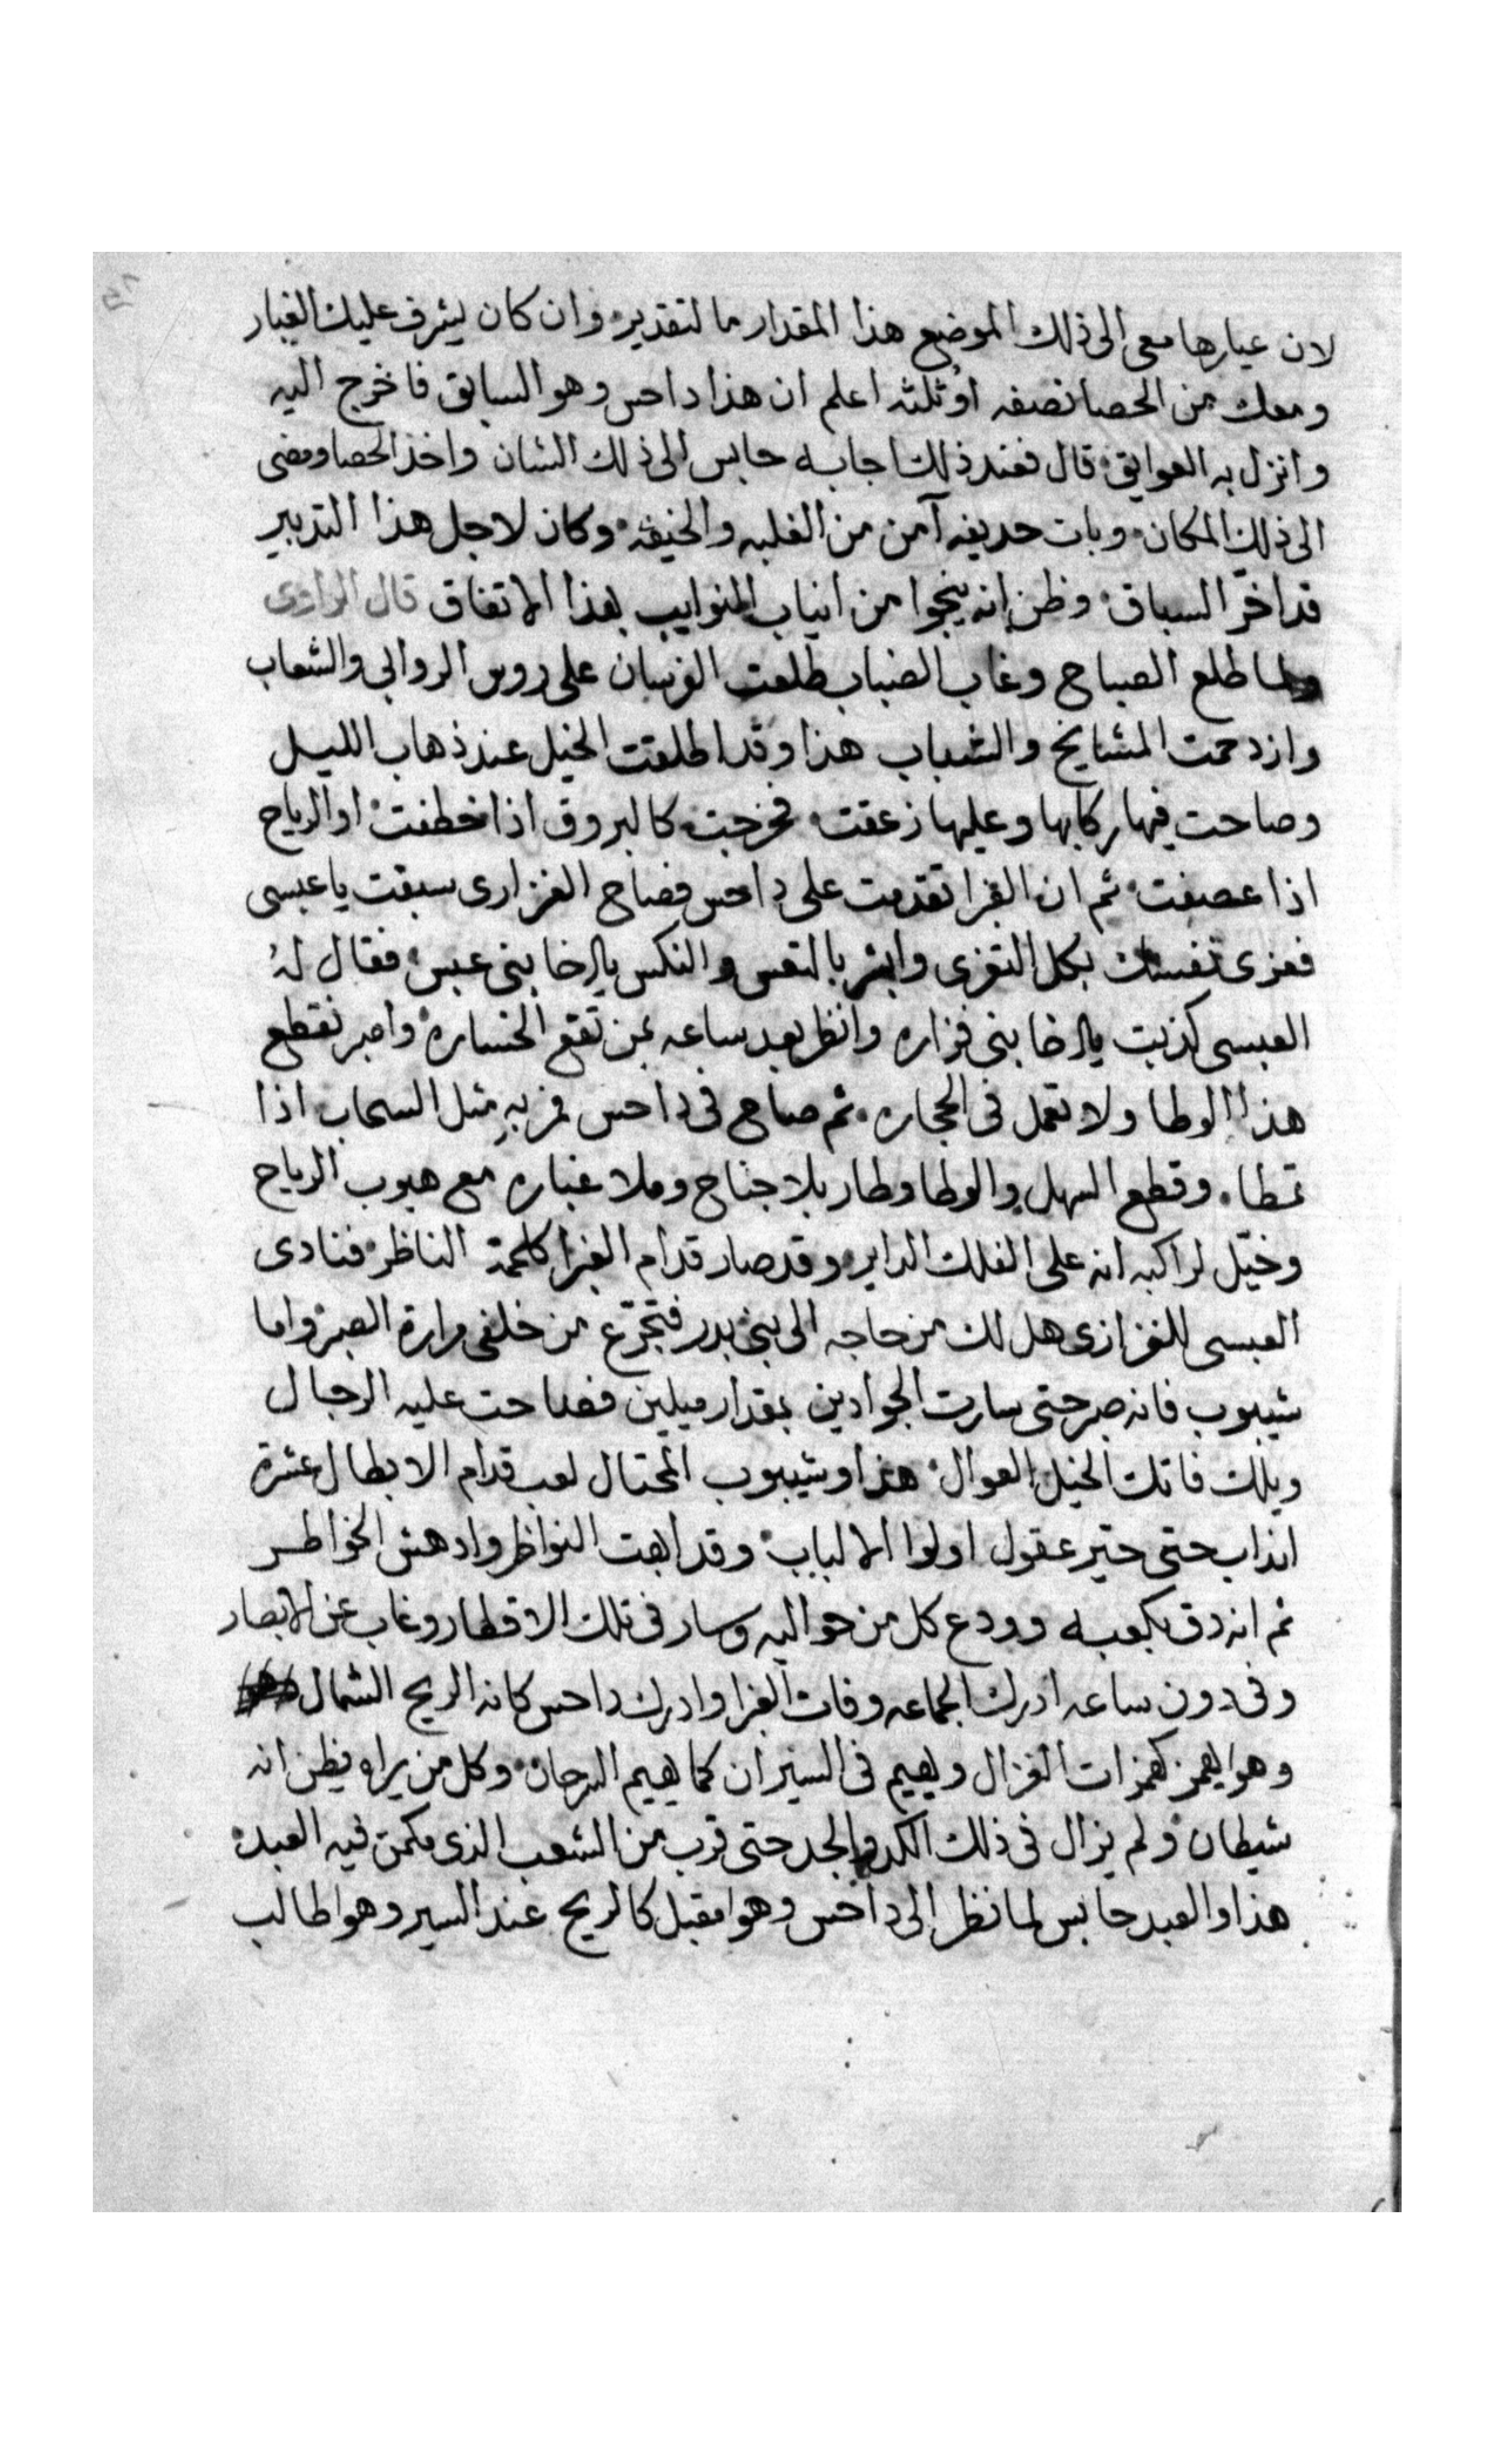 لان عيارها معى الى ذلك الموضع هذا المقدار ما لتقدير وان كان يشرف عليك الغبار
ومعك من الحصا نصفه او ثلثه اعلم ان هذا داحس وهو السابق فاخرج اليه
وانزل به العوايق قال فعند ذلك اجابه حابس الى ذلك الشان واخذ الحصا ومضى
الى ذلك المكان وبات حديفه آمن من الغلبه والخيفه وكان لاجل هذا التدبير
قد اخّر السباق وظن انه ينجوا من انياب النوايب بهذا الاتفاق قال الراوى
ولما طلع الصباح وغاب الضباب طلعت الفرسان على روس الروابى والشعاب
وازدحمت المشايخ والشباب هذا وقد اطلقت الخيل عند ذهاب الليل
وصاحت فيها ركابها وعليها زعقت فخرجت كالبروق اذا خطفت او الرياح
اذا عصفت ثم ان الغبرا تقدمت على داحس فصاح الفزارى سبقت يا عبسى
فعزى نفسك بكل التعزى وابشر بالتعس والنكس يا اخا بنى عبس فقال له
العبسى كذبت يا اخا بنى فزاره وانظر بعد ساعه بمن تقع الخساره واصبر نقطع
هذا الوطا ولا تعمل فى الحجاره ثم صاح فى داحس فمر به مثل السحاب اذا
تمطا وقطع السهل والوطا وطار بلا جناح وملا غباره مع هبوب الرياح
وخيّل لراكبه انه على الفلك الداير وقد صار قدام الغبرا كلمحة الناظر فنادى
العبسى للفزارى هل لك من حاجه الى بنى بدر فتجرّع من خلفى مرارة الصبر واما
شيبوب فانه صبر حتى سارت الجوادين بمقدار ميلين فصاحت عليه الرجال
ويلك فاتك الخيل العوال هذا وشيبوب المحتال لعب قدام الابطال عشرة
انداب حتى حيّر عقول اولوا الالباب وقد ابهت النواظر وادهش الخواطر
ثم انه دق بكعبه وودع كل من حواليه وسار فى تلك الاقطار وغاب عن الابصار
وفى دون ساعه ادرك الجماعه وفات الغبرا وادرك داحس كانه الريح الشمال
وهوا يهمز كهمزات الغزال ويهيم فى السيران كما يهيم السرحان وكل من يراه يظن انه
شيطان ولم يزال فى ذلك الكد والجد حتى قرب من الشعب الذى مكمن فيه العبد
هذا والعبد حابس لما نظر الى داحس وهوا مقبل كالريح عند السير وهوا طالب